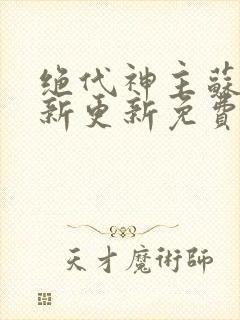 绝代神主蘇
新更新免費
天才魔術師